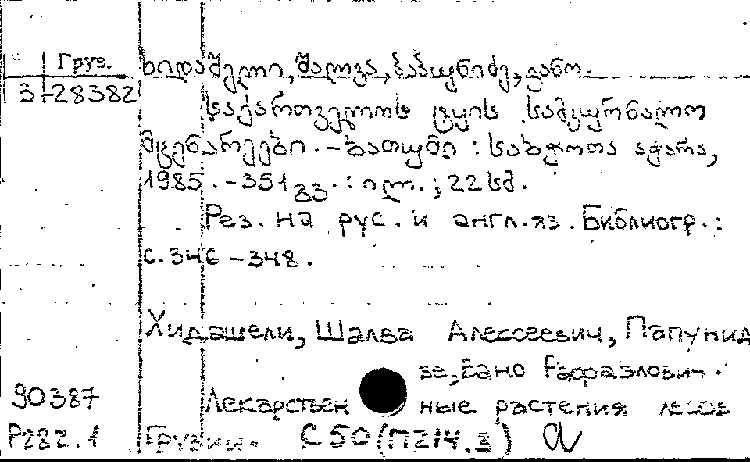 Груз. ხიდაშელი, შალვა, პაპუნიძე, ვანო.
3-28382 საქართველოს ტყის სამკურნალო
მცენარეები. - ბათუმი : საბჭოთა აჭარა,
1985. - 351 გვ. : ილ. ; 22 სმ.
Рез. на рус. и англ. яз. Библиогр.:
с. 346 - 348.
Хидашели, Шалва Алексеевич, Папунид
зе, Вано Рафаэлович.
90387 Лекарствен ные растения лесов
P282.1 Грузии. С50(П214.3)